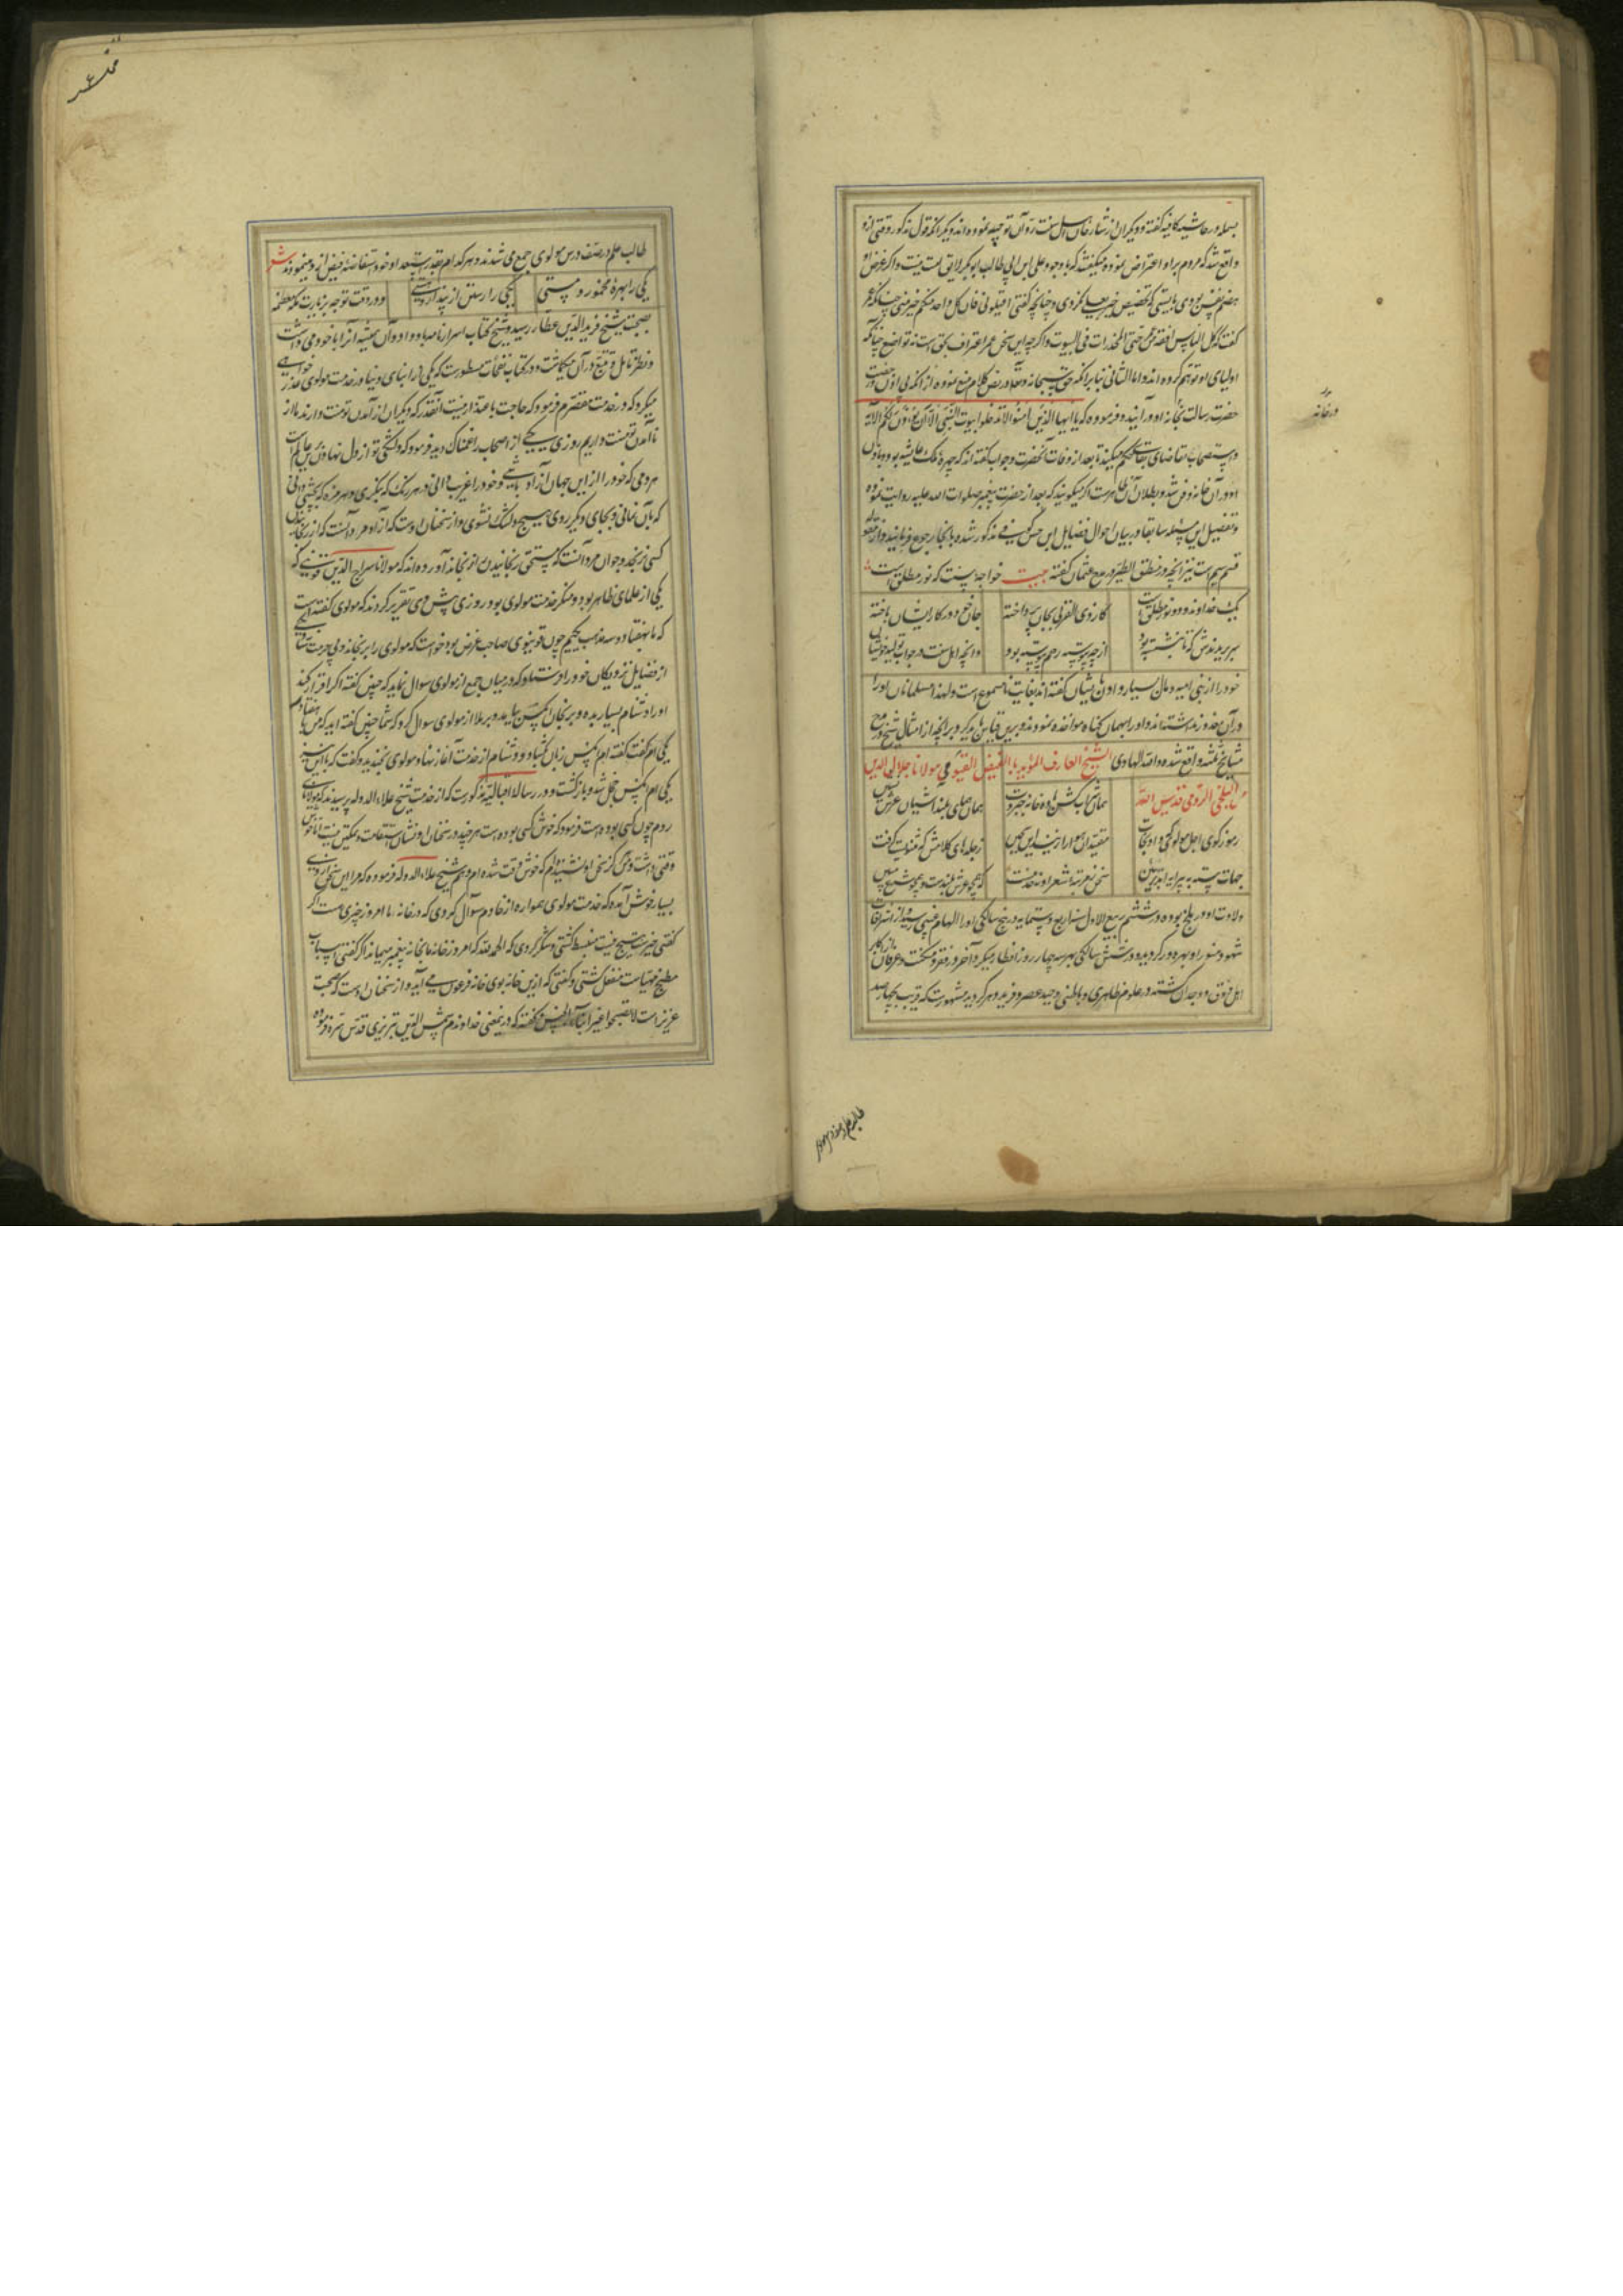 واقع شد که مردم برو اعتراض نموده میگفتند که با وجود علی ابن ابی طالب ابوبکر لایق امامت نیست و اگر غرض او
هضم نفس بودی بایستی که تخصیص خیریت بعلی نکردی و چنانچه گفتی اقیلونی فان کل واحد منکم خیر منی چنانکه عمر
گفت که کل الناس افقه من عمر حتی المخدرات فی البیوت و اگر چه این سخن عمر اعتراف بحق است نه تواضع چنانکه
اولیای او توهم کرده اند و اما الثانی بنا بر آنکه حق سبحانه و تعالی در نص کلام منع نموده از آنکه بی اذن حضرت
حضرت رسالت بخانه او در آیند و فرموده که یا ایها الذین آمنوا لا تدخلوا بیوت النبی الا ان یؤذن لکم الآیه
او در آن خانه دفن شد و بطلان آن ظاهرست اگر میگویند که بعد از حضرت پیغمبر صلوات الله علیه روایت نموده
و تفصیل این مسئله سابقا در بیان احوال فضایل
قسم بهم است نیز آنچه در منطق الطیر در مدح عثمان گفته بیت خواجه سنت که نور مطلق است
بل خداوند دو نور مطلق است
کار ذی القربی بجان پرداخته
جان خود در کار ایشان باخته
سر بریدندش که تا بنشسته بود
از چه پیوسته رحم پیوسته بود
و آنچه اهل سنت در جواب
خود را از بنی امیه و مال بسیار دادن بایشان گفته اند بغایت نامسموع است و لهذا مسلمانان او را
در آن معذور نداشتند و او را بهمان گناه مواخذه نمودند و برین قیاس باید کرد بر آنچه از امثال شیخ در مدح
مشایخ ثلثه واقع شده والله الهادی الشیخ العارف المؤید بالفیض القیومی مولانا جلال الدین
محمد البلخی الرومی قدس الله سره
همای بلند آشیان عرش
رموز گوی
ز جلدهای کلامش که مثنویست گرفت
ولادت او در بلخ بوده در ششم ربیع الاول سنه اربع و ستمایه در پنج سالگی او را الهام غیبی رسید
و در شش سالگی بهر سه چهار روز افطار میکرد و آخر در فقر و مسکنت و عرفان
اهل ذوق و وجدان گشته در علوم ظاهری و باطنی وحید عصر و فرید دهر گردید مشهورست که قریب بچهار صد
در خانه
طالب علم در صف درس مولوی جمع می شدند و هر کدام بقدر استعداد خود استفاضه فیض ازو مینمودند شعر
یکی را بهره مخموری و مستی
یکی را رستن از پندار هستی
و در وقت توجه بزیارت مکه معظمه
بصحبت شیخ فرید الدین عطار رسید و شیخ کتاب اسرار نامه باو داد و آن همیشه آنرا با خود می داشت
و نظر تامل و تتبع در آن میگماشت و در کتاب نفحات مسطورست که یکی از ابنای دنیا در خدمت مولوی عذر خواهی
میکرد که در خدمت مقصرم فرمود که حاجت باعتذار نیست آنقدر که دیگران از آمدن تو منت دارند ما از
نا آمدن تو منت داریم روزی یکی از اصحاب را غمناک دید فرمود که دلتنگی تو از دل نهادن برین عالم است
مردمی که خود را ازین جهان آزاد باشی و خود را غریب دانی و در هر رنگ که بنگری و هر مزه که بچشی دانی
که بآن نمانی و بجای دیگر روی هیچ دلتنگ نشوی و از سخنان اوست که آزاد مرد آنست که از رنجانیدن
کسی نرنجد و جوانمرد آنست که مستحق رنجانیدن را نرنجاند آورده اند که مولانا سراج الدین قونیوی که
یکی از علمای ظاهر بود و منکر خدمت مولوی بود روزی پیش وی تقریر کردند که مولوی گفته است
که ما بهفتاد و سه مذهب یکیم چون قونیوی صاحب غرض بود خواست که مولوی را برنجاند و بی حرمت سازد یکی
از فضایل نزدیکان خود را فرستاد که در میان جمع از مولوی سوال نماید که چنین گفته اگر اقرار کند
او را دشنام بسیار بده و برنجان آن کس بیامد و بر ملا از مولوی سوال کرد که شما چنین گفته اید که من با هفتاد و سه
یکی ام گفت گفته ام آن کس زبان بگشاد و دشنام از خدمت آغاز نهاد مولوی بخندید و گفت که با این نیز
یکی ام آن کس خجل شد و باز گشت و در رساله اقبالیه مذکورست که از خدمت شیخ علاء الدوله پرسیدند که مولانای
روم چون کسی بوده است فرمود که خوش کسی بوده است هر چند در سخنان او نشان استقامت و تمکین نیست اما خوش
وقتی داشت و من هرگز سخن او نشنیده ام که خوش وقت نشده ام و هم شیخ علاء الدوله فرموده که مرا این سخن از وی
بسیار خوش آمده که خدمت مولوی همواره از خادم سوال کردی که در خانه ما امروز چیزی هست اگر
گفتی خیرست هیچ نیست منبسط گشتی و شکر کردی که الحمد لله که امروز خانه ما بخانه پیغمبر میماند و اگر گفتی اسباب
مطبخ مهیاست منفعل گشتی و گفتی که ازین خانه بوی خانه فرعون می آید و از سخنان اوست که صحبت
عزیز است لا تصحبوا غیر ابناء الجنس گفته که درین معنی خداوندم شمس الدین تبریزی قدس سره فرموده